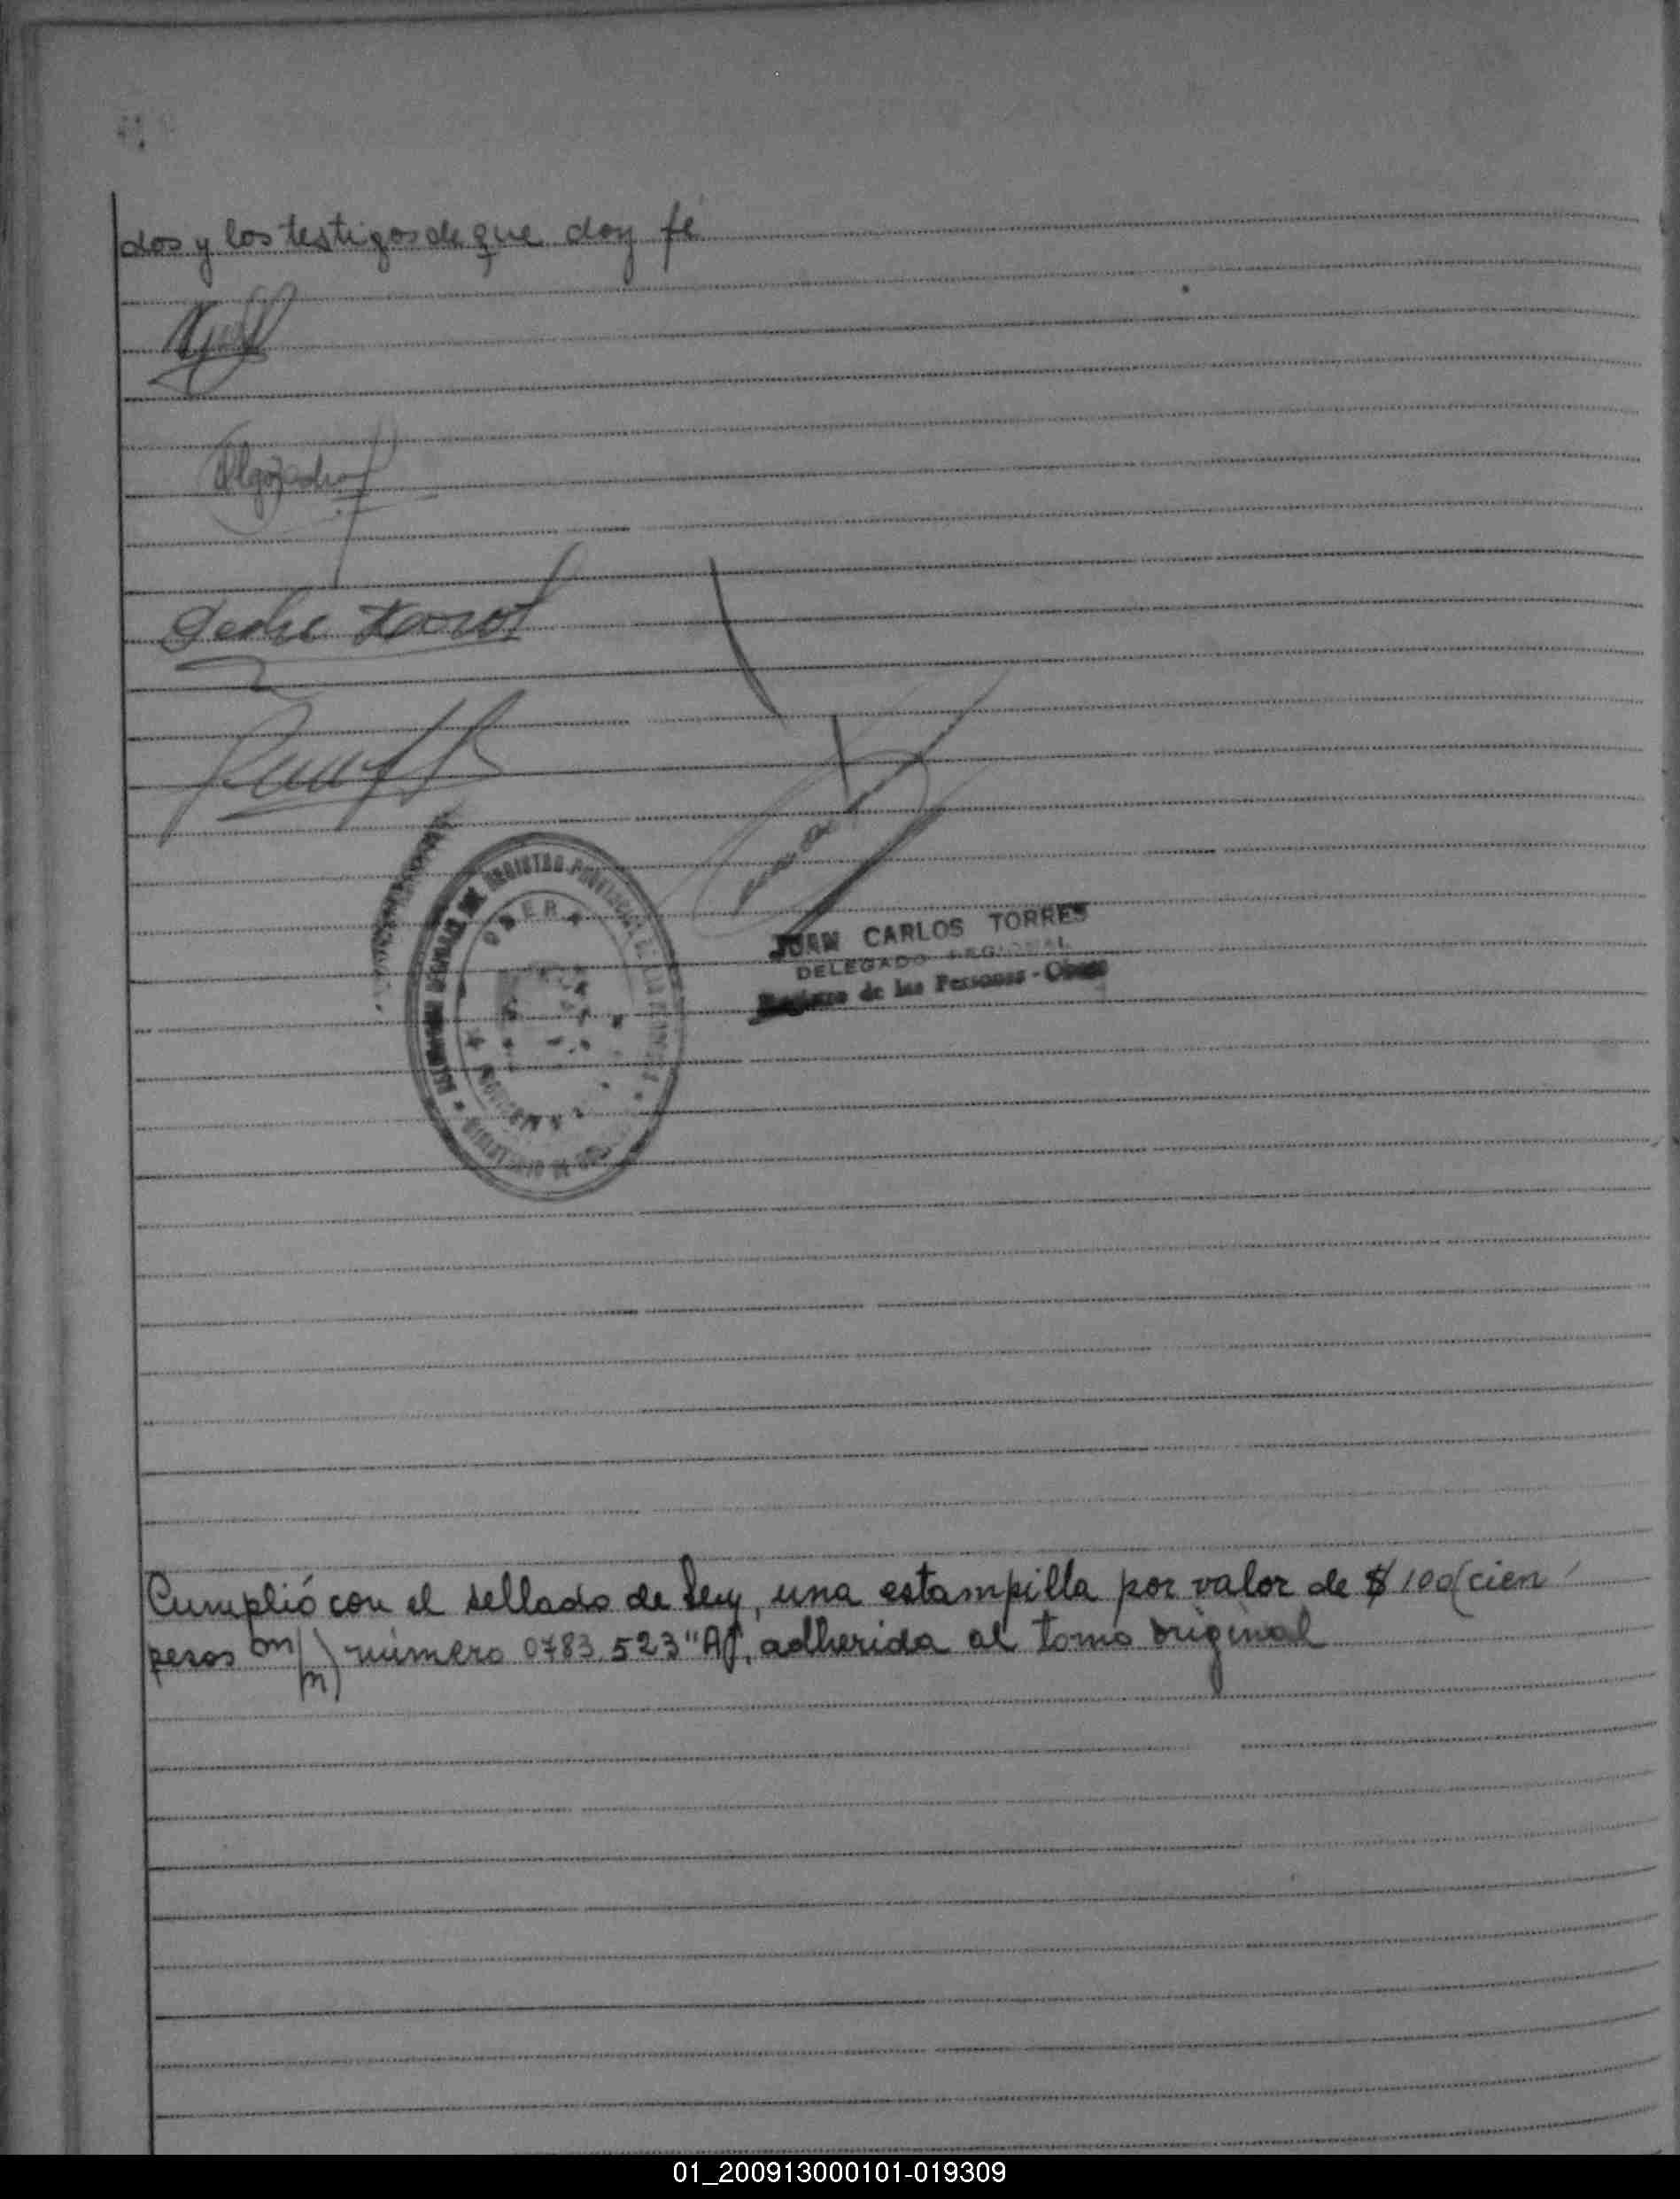 dos y los testigos de que doy fé
REGISTRO PROVINCIAL DE LAS PERSONAS
OBERA
MISIONES
JUAN CARLOS TORRES
DELEGADO REGIONAL
Registro de las Personas - Obera
Cumplió con el sellado de Ley, una estampilla por valor de $ 100 (cien
pesos m/n) número 0783.523 "A", adherida al tomo original
01_200913000101-019309